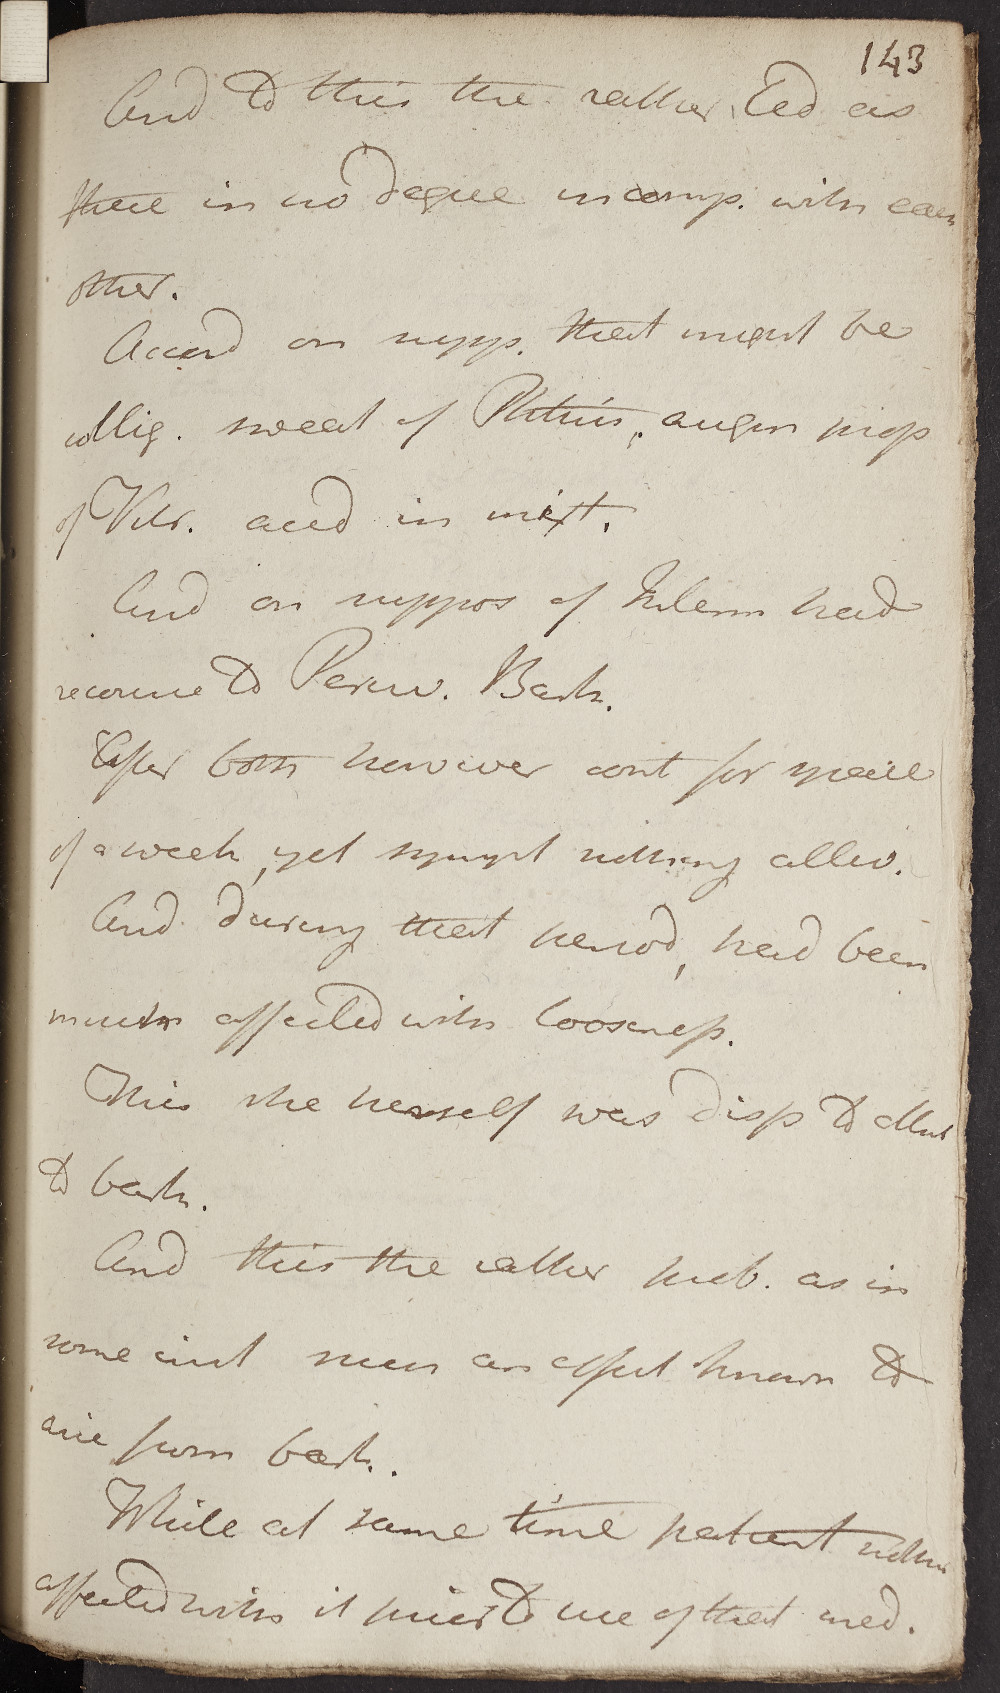 143
And to this the rather led as
these in no degree incomp. with each
other.
Accord on supps. that might be
collig. sweat of Phthisis, augm props
of Vitr. acid in mixt.
And on suppos of Interm had
recourse to Peruv. Bark.
After both however cont for space
of a week, yet sympt nothing allev.
And during that period, had been
much affected with looseness.
This she herself was disp to attrib
to bark.
And this the rather prob. as in
some inst such an effect known to
arise from bark.
While at same time patient nothing
affected with it prior to use of that med.